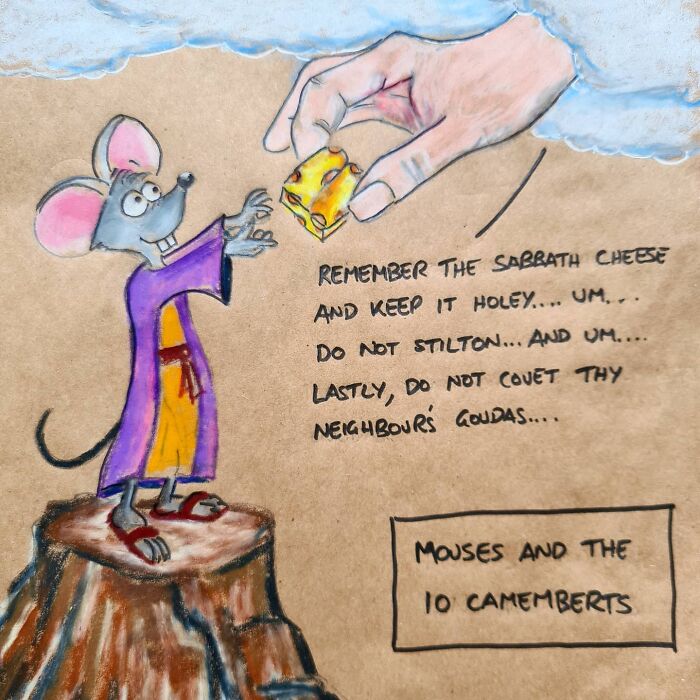 REMEMBER THE SABBATH CHEESE
AND KEEP IT HOLEY.... UM...
DO NOT STILTON... AND UM....
LASTLY, DO NOT COVET THY
NEIGHBOUR'S GOUDAS....
MOUSES AND THE
10 CAMEMBERTS